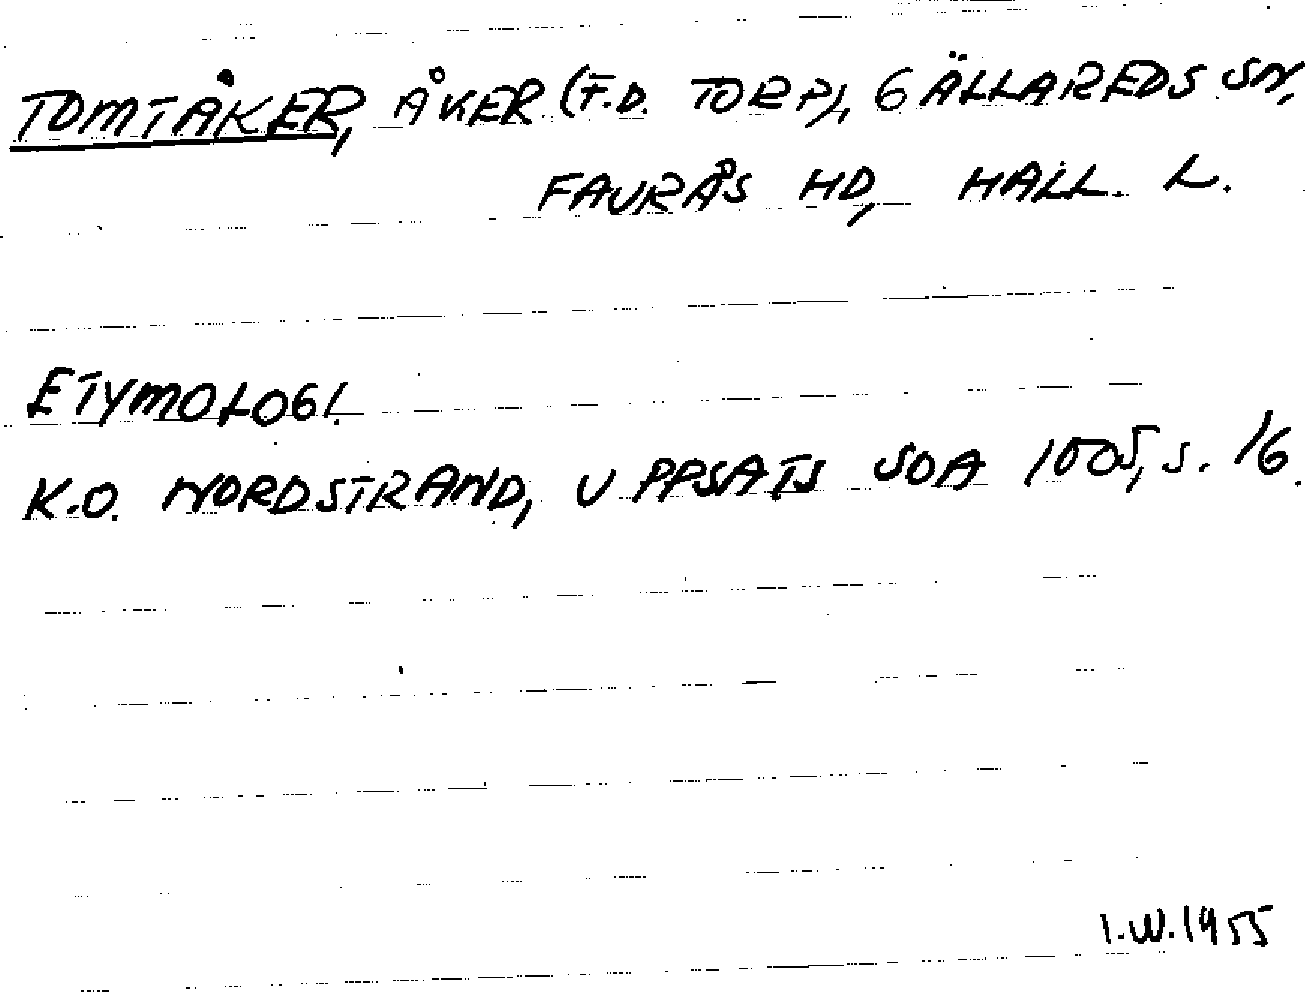 TOMTÅKER, ÅKER (F.D. TORP), GÄLLAREDS SN,
FAURÅS HD, HALL. L.
ETYMOLOGI.
K.O. NORDSTRAND, UPPSATS SOA 1005, S. 16.
I.W. 1955